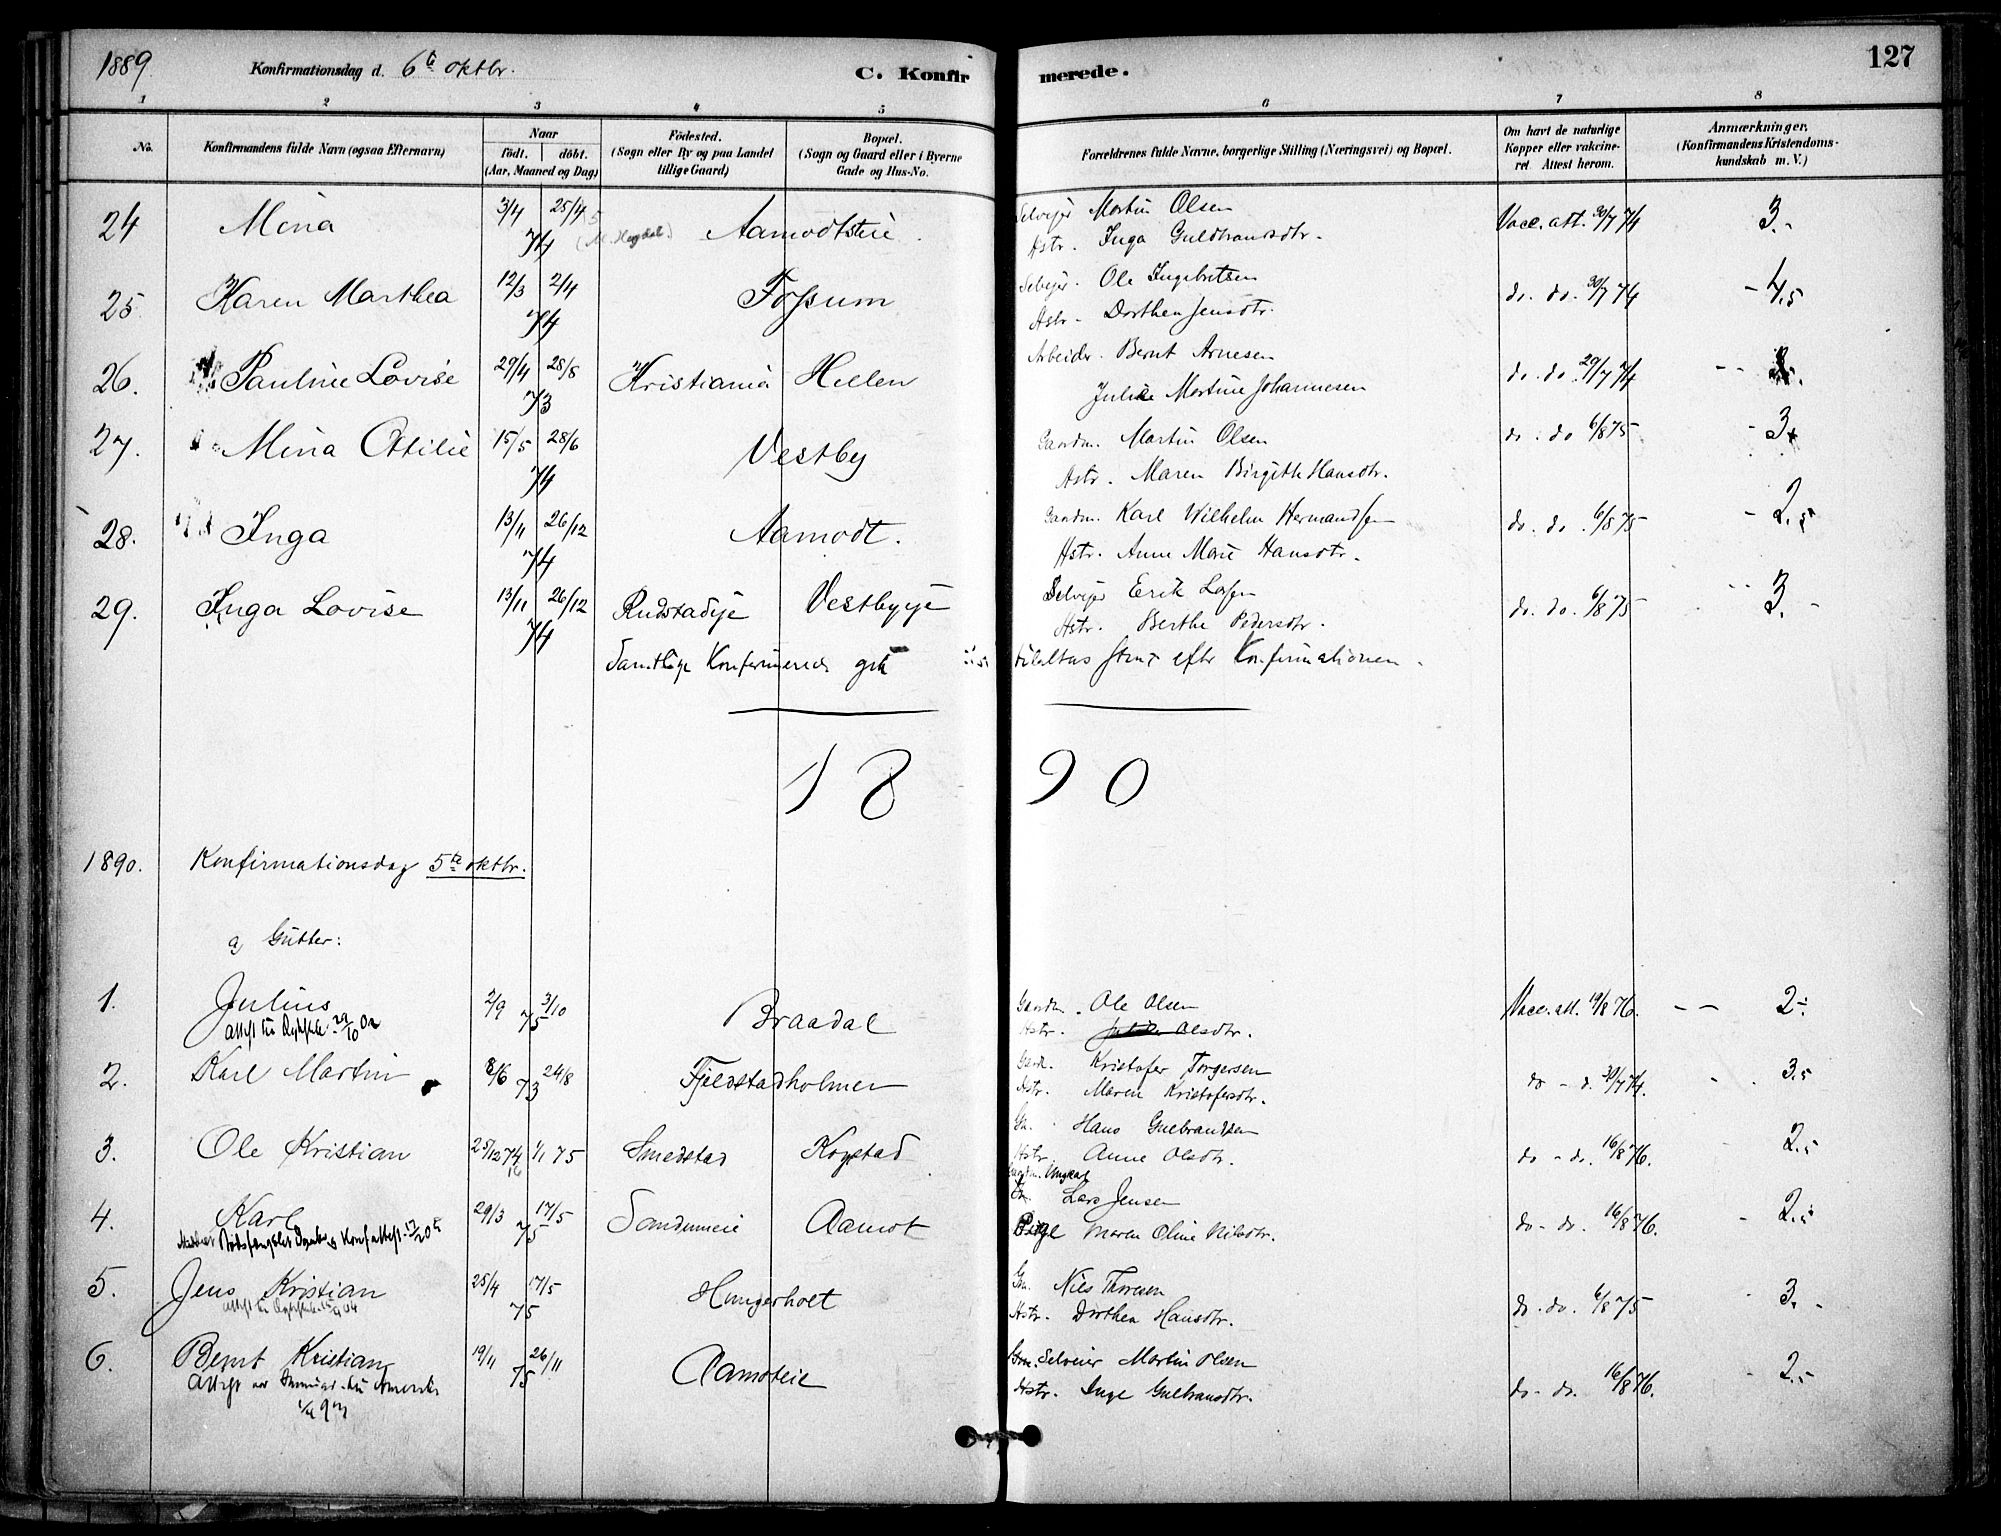 1889 Konfirmationsdag d. 6te oktbr. C. Konfirmerede. 127
1 2 3 4 5 6 7 8
No.
Konfirmandens fulde Navn (ogsaa Efternavn)
Naar
födt. döbt.
(Aar, Maaned og Dag)
Födested.
(Sogn eller By og paa Landet
tillige Gaard)
Bopæl.
(Sogn og Gaard eller i Byerne
Gade og Hus-No.
Forældrenes fulde Navne, borgerlige Stilling (Næringsvei) og Bopæl.
Om havt de naturlige
Kopper eller vakcine-
ret Attest herom.
Anmærkninger.
(Konfirmandens Kristendoms-
kundskab m. V.)
24 Mina 3/4 25/4 74 Aamodteie. Selvejer Martin Olsen Vacc. att. 30/7 74 3.-
Hstr. Inga Guldbrandsdtr.
25. Karen Marthea 12/3 2/4 74 Fossum Selvejer. Ole Ingebretsen do. do. 30/7 74 - 4,5
Hstr. Dorthea Jensdtr.
26. Pauline Lovise 29/4 28/8 73 Kristiania Hellen Arbeider. Bernt Arnesen do. do. 29/7 74
Julie Martine Johannesen
27. Mina Ottilie 15/5 28/6 74 Vestby Gaardm. Martin Olsen do. do 6/8 75 - 3
Hstr. Maren Birgitte Hansdtr.
28. Inga 13/11 26/12 74 Aamodt. Gaardm. Karl Wilhelm Hermandsen do. do. 6/8 75 - 2,5
Hstr. Anne Marie Hansdtr.
29. Inga Lovise 13/11 26/12 74 Rudstadeje Vestbyeje Selvejer Erik Larsen do. do. 6/8 75 3.-
Hstr. Berthe Pedersdtr.
Samtlige Konfirmerede gik til alters strax efter Konfirmationen.
1890
1890. Konfirmationsdag 5te oktbr.
a) Gutter:
1. Julius 2/9 3/10 75 Braadal Gaardm. Ole Olsen Vacc. att. 19/8 76. 2
Hstr. Olsdtr.
2. Karl Martin 8/6 24/8 73 Fjeldstadholmen Gardm. Kristofer Torgersen do - d. 30/7 74. 3,5
Hstr. Maren Kristofersdtr.
3. Ole Kristian 25/12 74 1/1 75 Smedstad Kogstad Gm. Hans Gulbrandsen do - do. 16/8 76. 2,5
Hstr. Anne Olsdtr.
Ungkarl
4. Karl 29/3 17/5 75 Sandumeie Aamot Lars Jensen do - do. 16/8 76. 2,5
Pige Maren Oline Nilsdtr.
5. Jens Kristian 25/4 17/5 75 Hungerholt Gm. Niels Thoresen do. do. 6/8 75 3.-
Hstr. Dorthea Hansdtr.
6. Bernt Kristian 19/11 26/11 75 Aamoteie Selveier Martin Olsen do - do. 16/8 76. 2,5
Hstr. Inge Gulbransdtr.